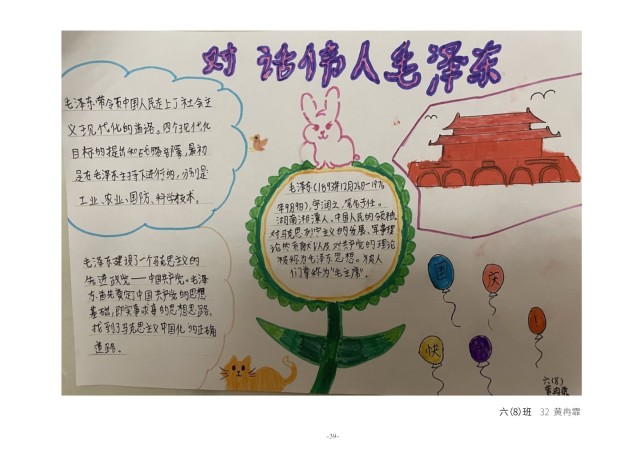 对话伟人毛泽东
毛泽东带领中国人民走上了社会主
义现代化的道路。四个现代化
目标的提出和战略部署,最初
是在毛泽东主持下进行的,分别是
工业、农业、国防、科学技术。
毛泽东(1893年12月26日-1976
年9月9日),字润之,笔名子任。
湖南湘潭人。中国人民的领袖,
对马克思列宁主义的发展、军事理
论的贡献以及对共产党的理论
被称为毛泽东思想。
们尊称为"毛主席"。
毛泽东建设了一个马克思主义的
先进政党——中国共产党。毛泽
东首先奠定了中国共产党的思想
基础,即实事求是的思想思路,
找到了马克思主义中国化的正确
道路。
国 庆
快 !
六(8)
黄冉霏
六(8)班 32 黄冉霏
-39-